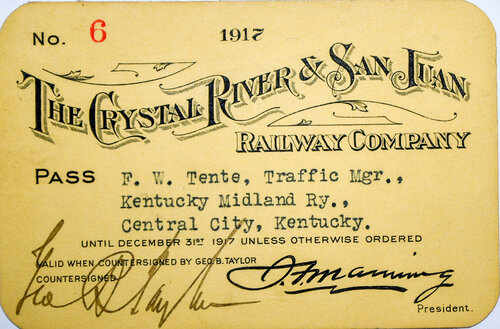 No. 6 1917
THE CRYSTAL RIVER & SAN JUAN
RAILWAY COMPANY
PASS F. W. Tente, Traffic Mgr.,
Kentucky Midland Ry.,
Central City, Kentucky.
UNTIL DECEMBER 31ST 1917 UNLESS OTHERWISE ORDERED
VALID WHEN COUNTERSIGNED BY GEO. B. TAYLOR
COUNTERSIGNED
Geo B Taylor
Manning
President.